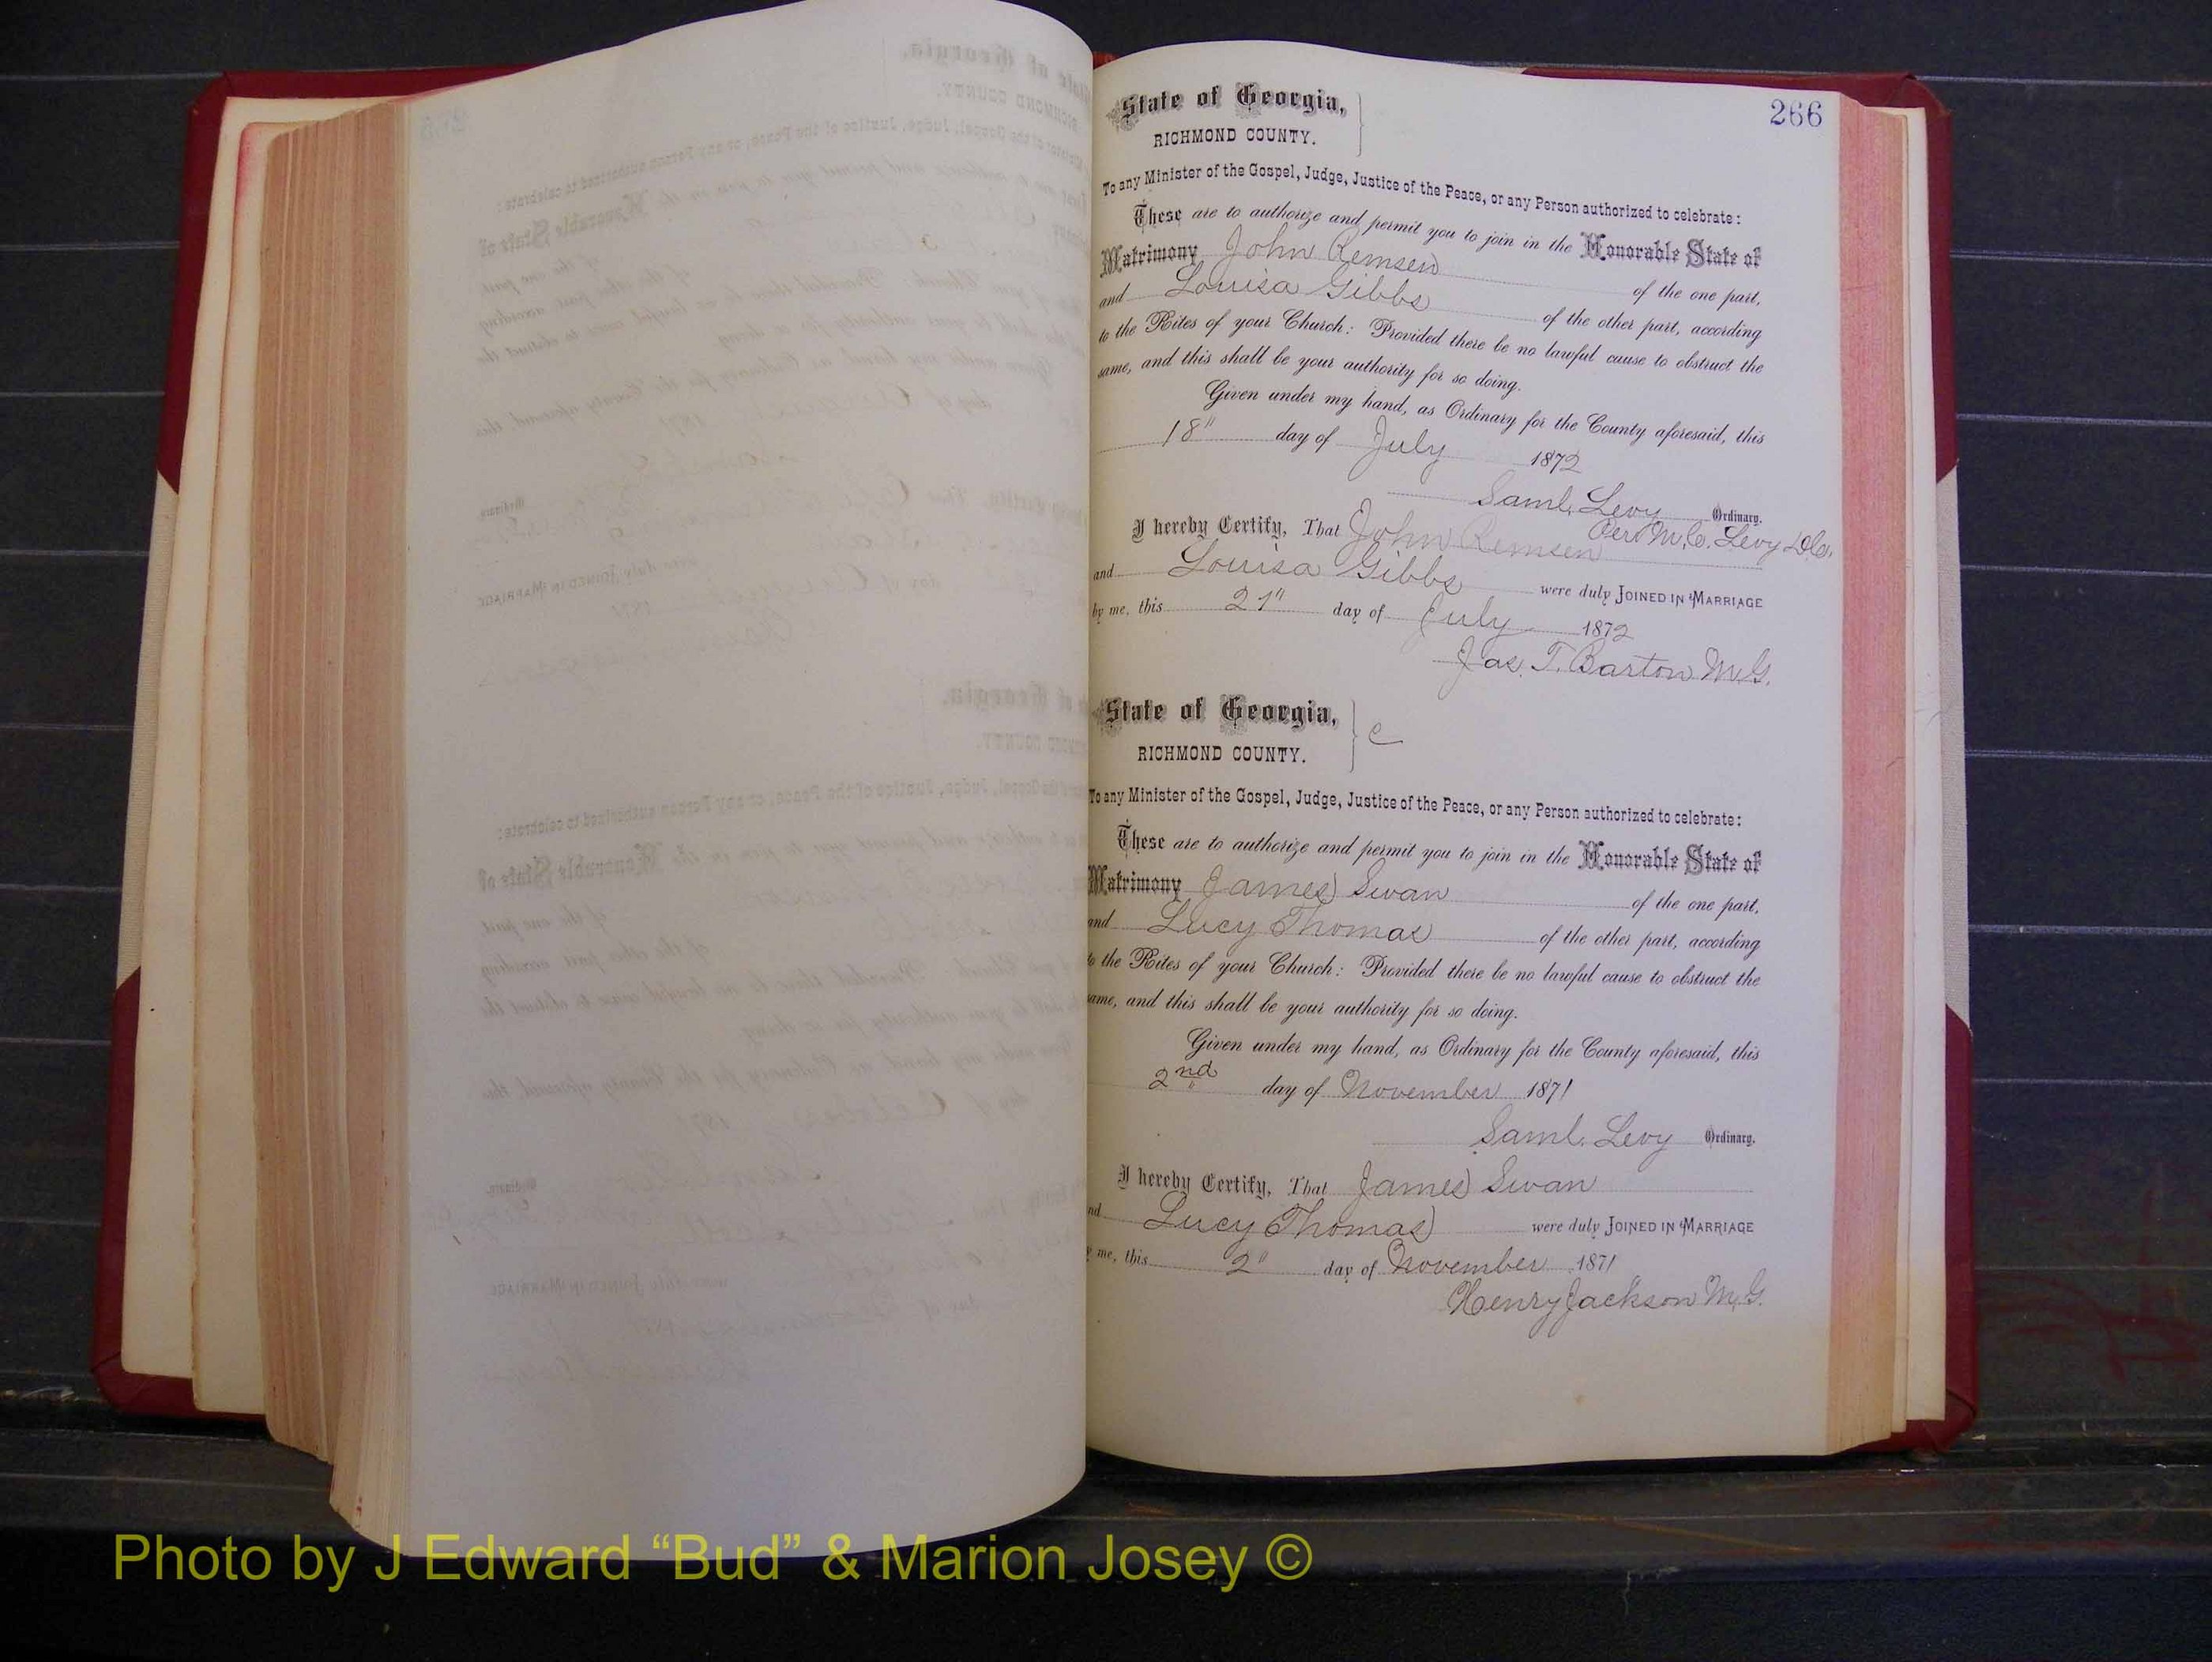 266
State of Georgia,
RICHMOND COUNTY.
To any Minister of the Gospel, Judge, Justice of the Peace, or any Person authorized to celebrate:
These are to authorize and permit you to join in the Honorable State of
Matrimony John Remsen of the one part,
and Louisa Gibbs of the other part, according
to the Rites of your Church: Provided there be no lawful cause to obstruct the
same, and this shall be your authority for so doing.
Given under my hand, as Ordinary for the County aforesaid, this
18" day of July 1872
Saml. Levy Ordinary.
Per M. C. Levy D.C.
I hereby Certify, That John Remsen
and Louisa Gibbs were duly JOINED IN MARRIAGE
by me, this 21" day of July 1872
Jas. T. Barton M.G.
State of Georgia, C
RICHMOND COUNTY.
To any Minister of the Gospel, Judge, Justice of the Peace, or any Person authorized to celebrate:
These are to authorize and permit you to join in the Honorable State of
Matrimony James Swan of the one part,
and Lucy Thomas of the other part, according
to the Rites of your Church: Provided there be no lawful cause to obstruct the
same, and this shall be your authority for so doing.
Given under my hand, as Ordinary for the County aforesaid, this
2nd day of November 1871
Saml. Levy Ordinary.
I hereby Certify, That James Swan
and Lucy Thomas were duly JOINED IN MARRIAGE
by me, this 2" day of November 1871
Henry Jackson M.G.
Photo by J Edward “Bud” & Marion Josey ©